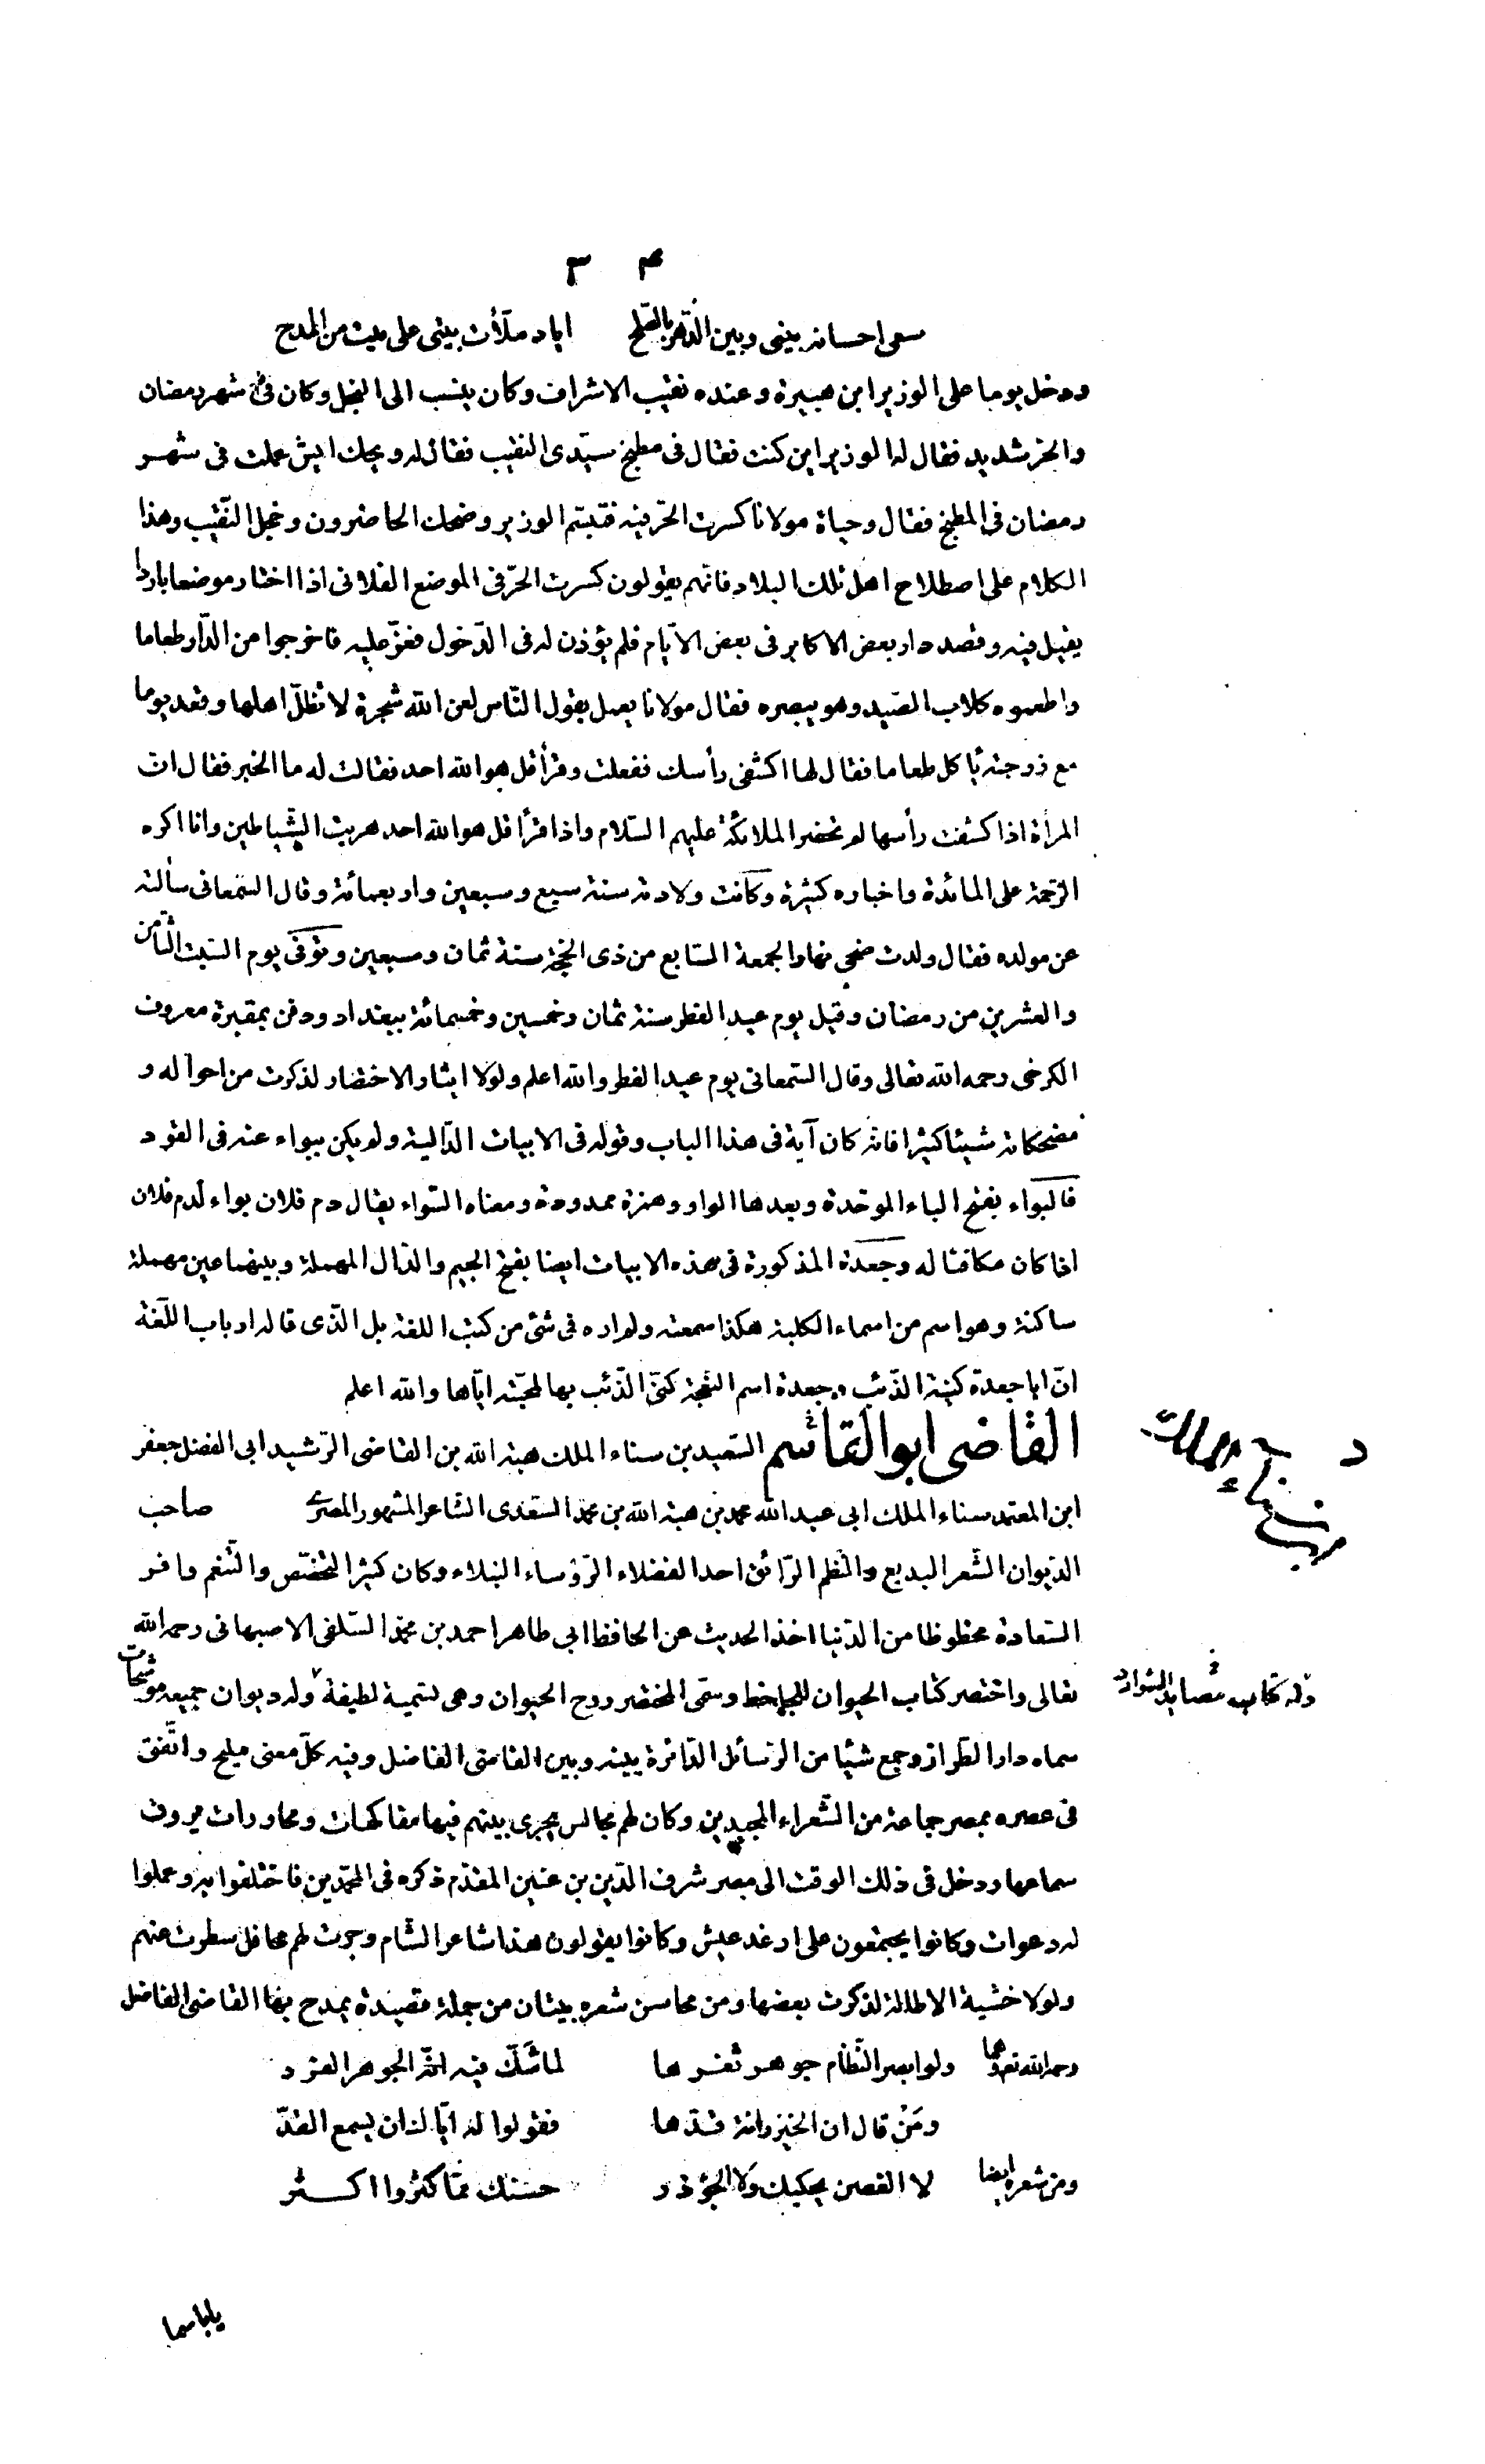 ٣ ٣
سعى احسانه بينى وبين الدّهر بالصّلح اياد ملأت بيتى على ميت من المدح
ودخل يوما على الوزير ابن هبيرة وعنده نقيب الاشراف وكان ينسب الى البخل وكان فى شهر رمضان
والحر شديد فقال له الوزير اين كنت فقال فى مطبخ سيّدى النقيب فقال له ويحك ايش عملت فى شهر
رمضان فى المطبخ فقال وحياة مولانا كسرت الحرّ فيه فتبسّم الوزير وضحك الحاضرون وخجل النّقيب وهذا
الكلام على اصطلاح اهل تلك البلاد فانّهم يقولون كسرت الحرّ فى الموضع الفلانى اذا اختار موضعا باردا
يقيل فيه وقصد دار بعض الاكابر فى بعض الايّام فلم يؤذن له فى الدّخول فعزّ عليه فاخرجوا من الدّار طعاما
واطعموه كلاب الصّيد وهو يبصره فقال مولانا يعمل بقول النّاس لعن الله شجرة لا تظلّ اهلها وقعد يوما
مع زوجته يأكل طعاما فقال لها اكشفى رأسك ففعلت وقرأ قل هو الله احد فقالت له ما الخبر فقال انّ
المرأة اذا كشفت رأسها لم تحضر الملائكة عليهم السّلام واذا قرأ قل هو الله احد هربت الشّياطين وانا اكره
الزّحمة على المائدة واخباره كثيرة وكانت ولادته سنة سبع وسبعين واربعمائة وقال السّمعانى سألته
عن مولده فقال ولدت ضحى نهار الجمعة السّابع من ذى الحجّة سنة ثمان وسبعين وتوفّى يوم السّبت الثّامن
والعشرين من رمضان وقيل يوم عيد الفطر سنة ثمان وخمسين وخمسمائة ببغداد ودفن بمقبرة معروف
الكرخى رحمه الله تعالى وقال السّمعانى يوم عيد الفطر والله اعلم ولولا ايثار الاختصار لذكرت من احواله و
مضحكاته شيئا كثيرا فانّه كان آية فى هذا الباب وقوله فى الابيات الدّالية ولم يكن ببواء عنه فى القود
فالبواء بفتح الباء الموحّدة وبعدها الواو وهمزة ممدودة ومعناه السّواء يقال دم فلان بواء لدم فلان
اذا كان مكافئا له وجعدة المذكورة فى هذه الابيات ايضا بفتح الجيم والدّال المهملة وبينهما عين مهملة
ساكنة وهو اسم من اسماء الكلبة هكذا سمعته ولم اره فى شئ من كتب اللغة بل الّذى قاله ارباب اللّغة
انّ ابا جعدة كنية الذّئب وجعدة اسم النّعجة كنّى الذّئب بها لمحبّته ايّاها والله اعلم
القاضى ابو القاسم السّعيد بن سناء الملك هبة الله بن القاضى الرّشيد ابى الفضل جعفر
ابن المعتمد سناء الملك ابى عبد الله محمد بن هبة الله بن محمد السّعدى الشّاعر المشهور المصرى صاحب
الدّيوان الشّعر البديع والنّظم الرّائق احد الفضلاء الرّؤساء النبلاء وكان كثير التّخصّص والتّنعّم وافر
السّعادة محظوظا من الدّنيا اخذ الحديث عن الحافظ ابى طاهر احمد بن محمد السّلفى الاصبهانى رحمه الله
تعالى واختصر كتاب الحيوان للجاحظ وسمّى المختصر روح الحيوان وهى تسمية لطيفة وله ديوان جميعه موشّحات
وله كتاب مصايد الشوارد
سماه دار الطّراز وجمع شيئا من الرّسائل الدّائرة بينه وبين القاضى الفاضل وفيه كلّ معنى مليح واتّفق
فى عصره بمصر جماعة من الشّعراء المجيدين وكان لهم مجالس يجرى بينهم فيها مفاكهات ومحاورات يروق
سماعها ودخل فى ذلك الوقت الى مصر شرف الدّين بن عنين المقدّم ذكره فى المحمّدين فاحتفلوا به وعملوا
له دعوات وكانوا يجتمعون على ارغد عيش وكانوا يقولون هذا شاعر الشّام وجرت لهم محافل سطرت عنهم
ولولا خشية الاطالة لذكرت بعضها ومن محاسن شعره بيتان من جملة قصيدة يمدح بها القاضى الفاضل
رحمه الله تع وهما ولو ابصر النّظّام جوهر ثغرها لما شكّ فيه انّه الجوهر الفرد
ومَنْ قال ان الخيزرانة قدّها فقولوا له ايّاك ان يسمع القدّ
ومن شعره ايضا لا الغصن يحكيك ولا الجؤذر حسنك ممّا كثّروا اكثر